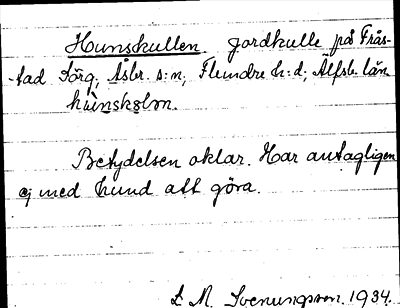 Hunskullen jordkulle på Frås-
-tad Törg, Åsbr. s:n, Flundre h:d; Älfsb. län
hùnskøln.
Betydelsen oklar. Har antagligen
ej med hund att göra.
L M. Svenungsson. 1934.